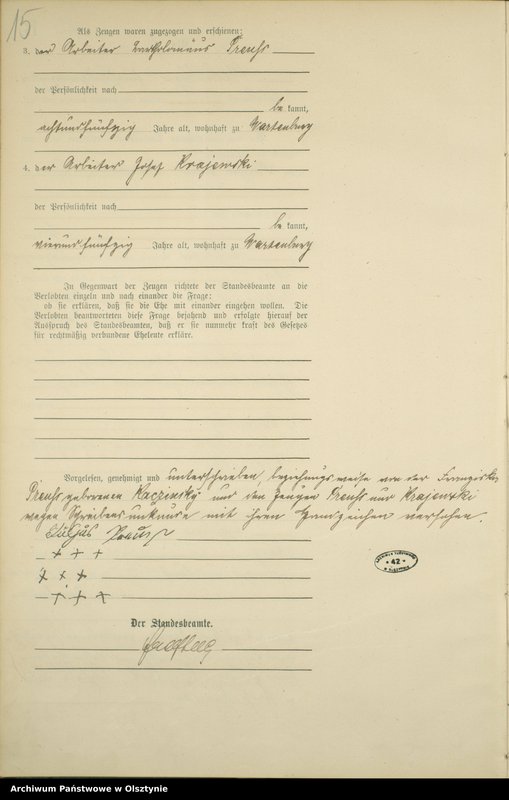 15
Als Zeugen waren zugezogen und erschienen:
3. der Arbeiter Bartholomäus Preuss
der Persönlichkeit nach
be kannt,
achtundfünfzig Jahre alt, wohnhaft zu Wartenburg
4. der Arbeiter Josef Krajewski
der Persönlichkeit nach
be kannt,
vierundfünfzig Jahre alt, wohnhaft zu Wartenburg
In Gegenwart der Zeugen richtete der Standesbeamte an die
Verlobten einzeln und nach einander die Frage:
ob sie erklären, daß sie die Ehe mit einander eingehen wollen. Die
Verlobten beantworteten diese Frage bejahend und erfolgte hierauf der
Ausspruch des Standesbeamten, daß er sie nunmehr kraft des Gesetzes
für rechtmäßig verbundene Eheleute erkläre.
Vorgelesen, genehmigt und unterschrieben, beziehungsweise von der Franziska
Preuss geborenen Kaczinsky und den Zeugen Preuss und Krajewski
wegen Schreibensunkunde mit ihren Handzeichen versehen.
Preuss
+ + +
+ + +
+ + +
Der Standesbeamte.
42
Archiwum Państwowe w Olsztynie